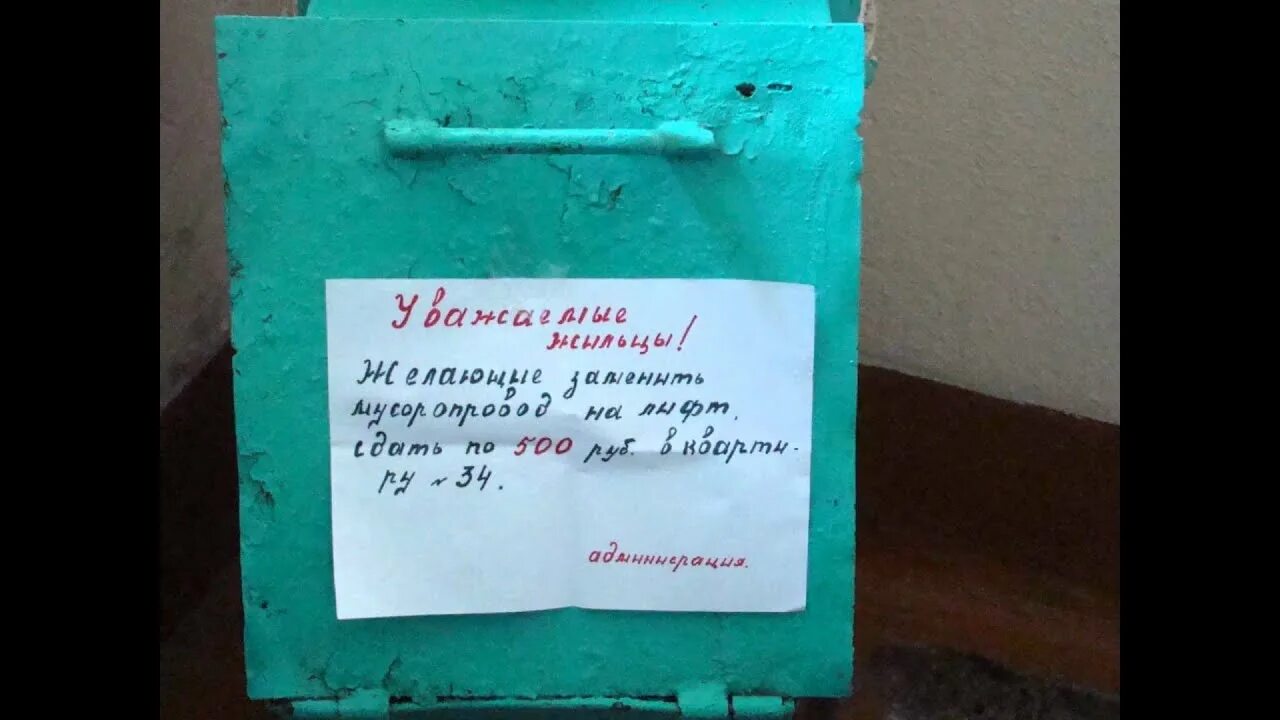 Уважаемые
жильцы!
Желающие заменить
мусоропровод на лифт,
сдать по 500 руб. в кварти-
ру № 34.
админисрация.